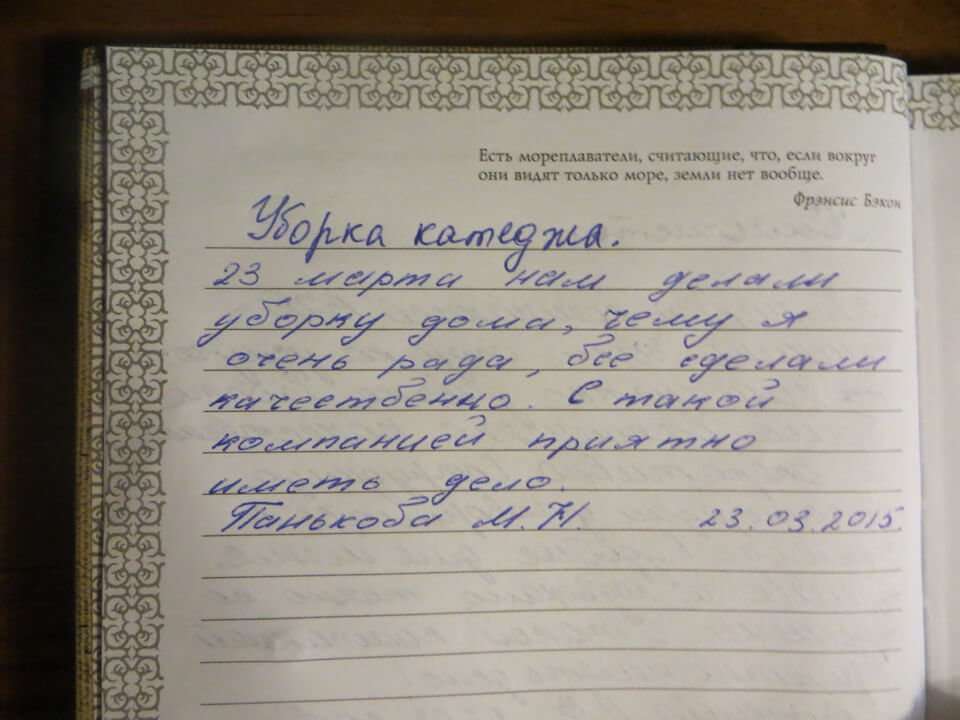 Есть мореплаватели, считающие, что, если вокруг
они видят только море, земли нет вообще.
Фрэнсис Бэкон
Уборка катеджа.
23 марта нам делали
уборку дома, чему я
очень рада, все сделали
качественно. С такой
компанией приятно
иметь дело.
Панькова М.Н. 23.03.2015.